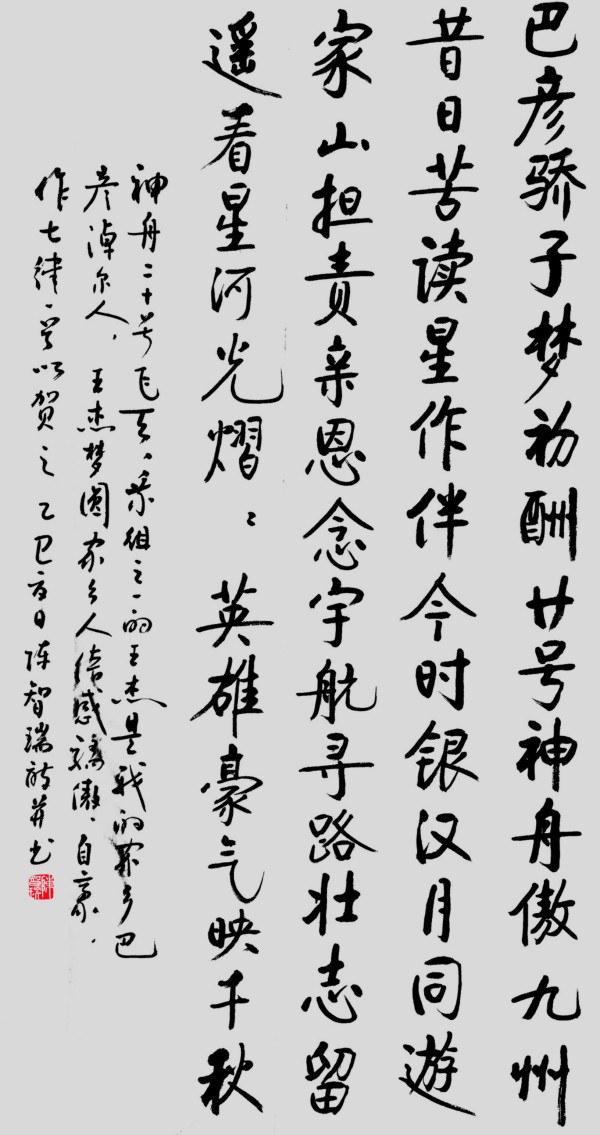 巴彦骄子梦初酬廿号神舟傲九州
昔日苦读星作伴今时银汉月同遊
家山担责亲恩念宇航寻路壮志留
遥看星河光熠〻英雄豪气映千秋
神舟二十号飞天、乘组之一的王杰是我的家乡巴
彦淖尔人，王杰梦圆家乡人倍感骄傲、自豪、
作七律一首以贺之 乙巳夏日陈智瑞诗并书